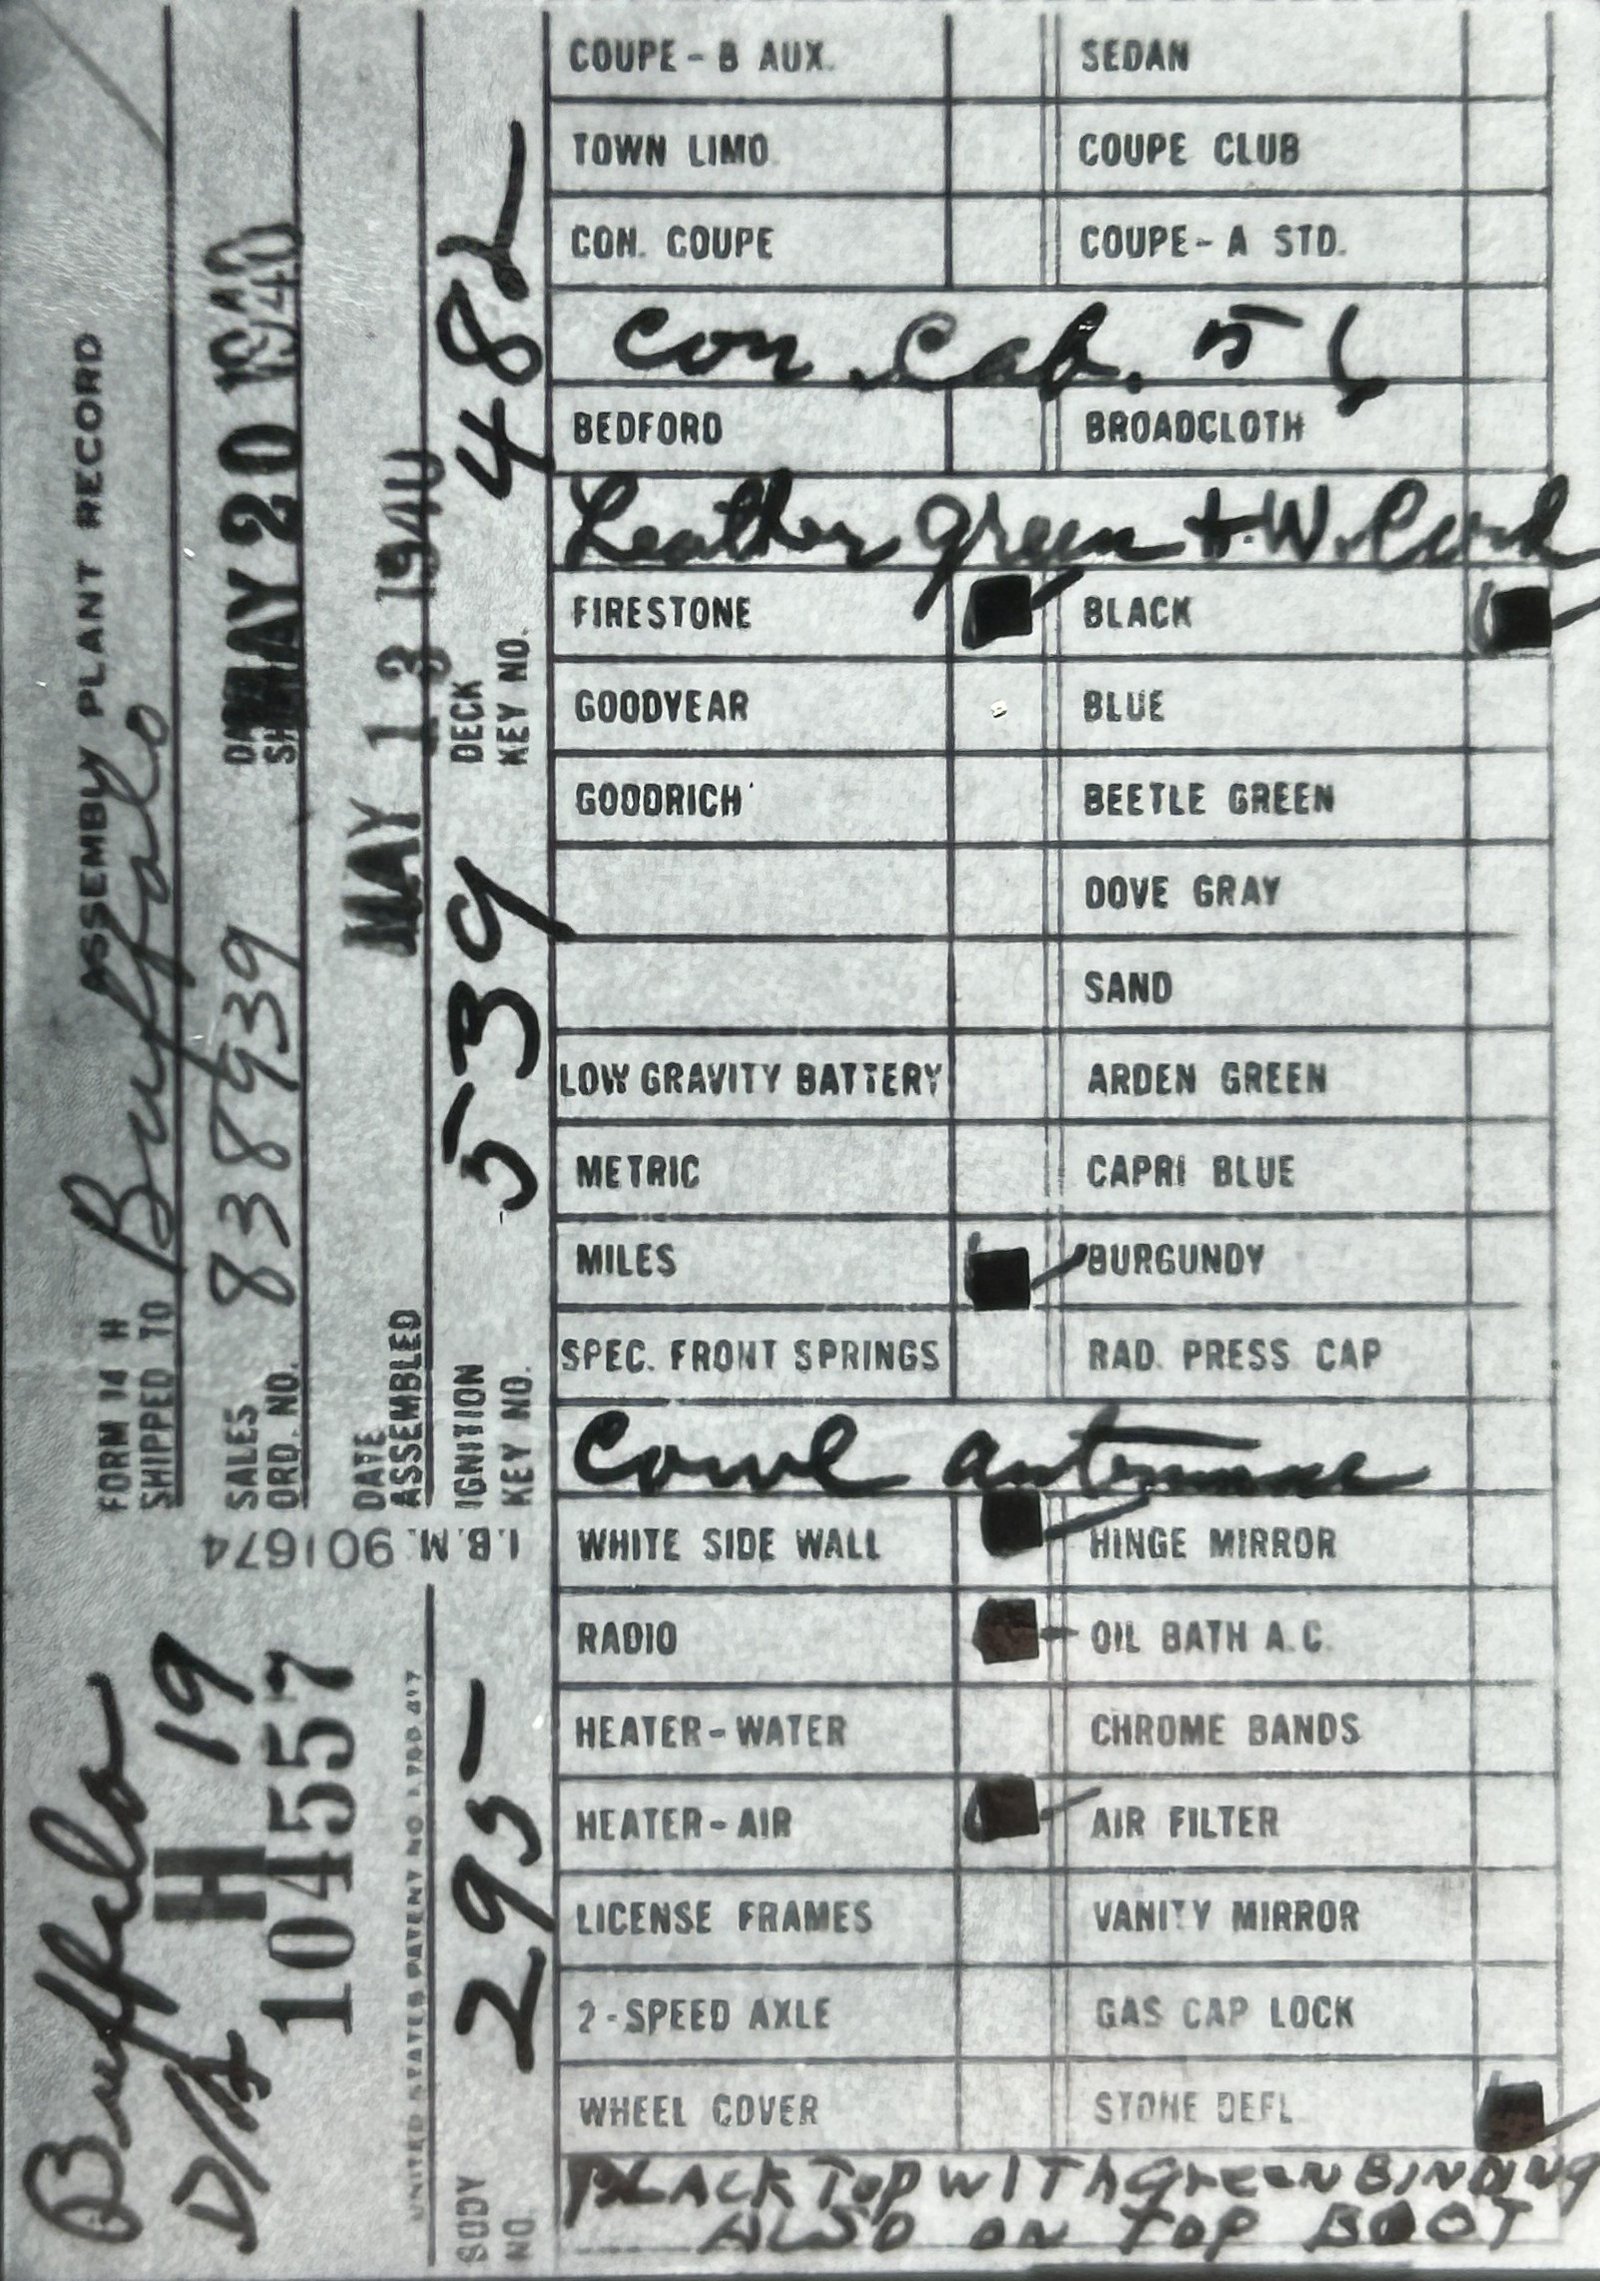 ASSEMBLY PLANT RECORD
FORM 14 H
SHIPPED TO Buffalo
SALES ORD. NO. 838939
MAY 20 1940
DATE ASSEMBLED MAY 13 1940
IGNITION KEY NO. 539
DECK KEY NO. 482
I.B.M. 901674
Buffalo
H 19
104557
BODY NO. 295
COUPE - B AUX. SEDAN
TOWN LIMO COUPE CLUB
CON. COUPE COUPE - A STD.
Con. Cab. 56
BEDFORD BROADCLOTH
Leather green + W. Cord
FIRESTONE BLACK
GOODYEAR BLUE
GOODRICH BEETLE GREEN
DOVE GRAY
SAND
LOW GRAVITY BATTERY ARDEN GREEN
METRIC CAPRI BLUE
MILES BURGUNDY
SPEC. FRONT SPRINGS RAD. PRESS CAP
Cowl antennae
WHITE SIDE WALL HINGE MIRROR
RADIO OIL BATH A.C.
HEATER - WATER CHROME BANDS
HEATER - AIR AIR FILTER
LICENSE FRAMES VANITY MIRROR
2 - SPEED AXLE GAS CAP LOCK
WHEEL COVER STONE DEFL
BLACK TOP WITH GREEN BINDING
ALSO ON TOP BOOT